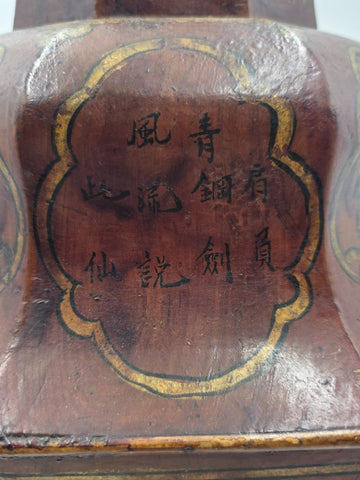 肩負
青鋼劍
風流説
此仙